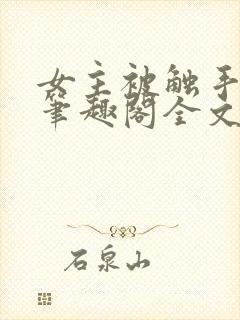 女主被触手
笔趣阁全文
石泉山